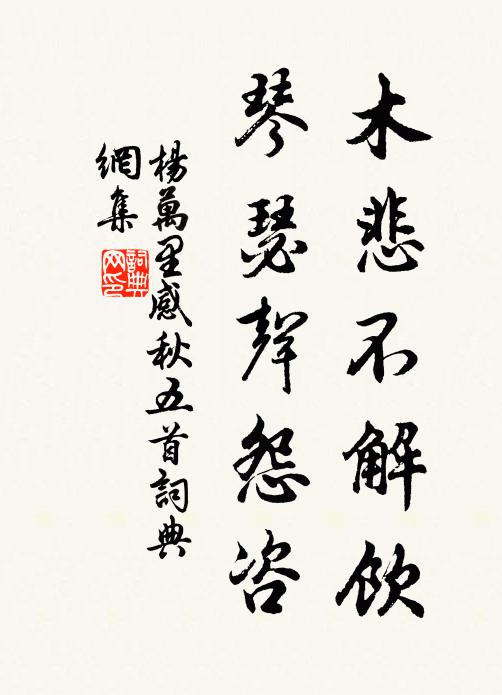 木悲不解飲
琴瑟聲怨咨
楊萬里感秋五首詞典
網集
詞典
网印